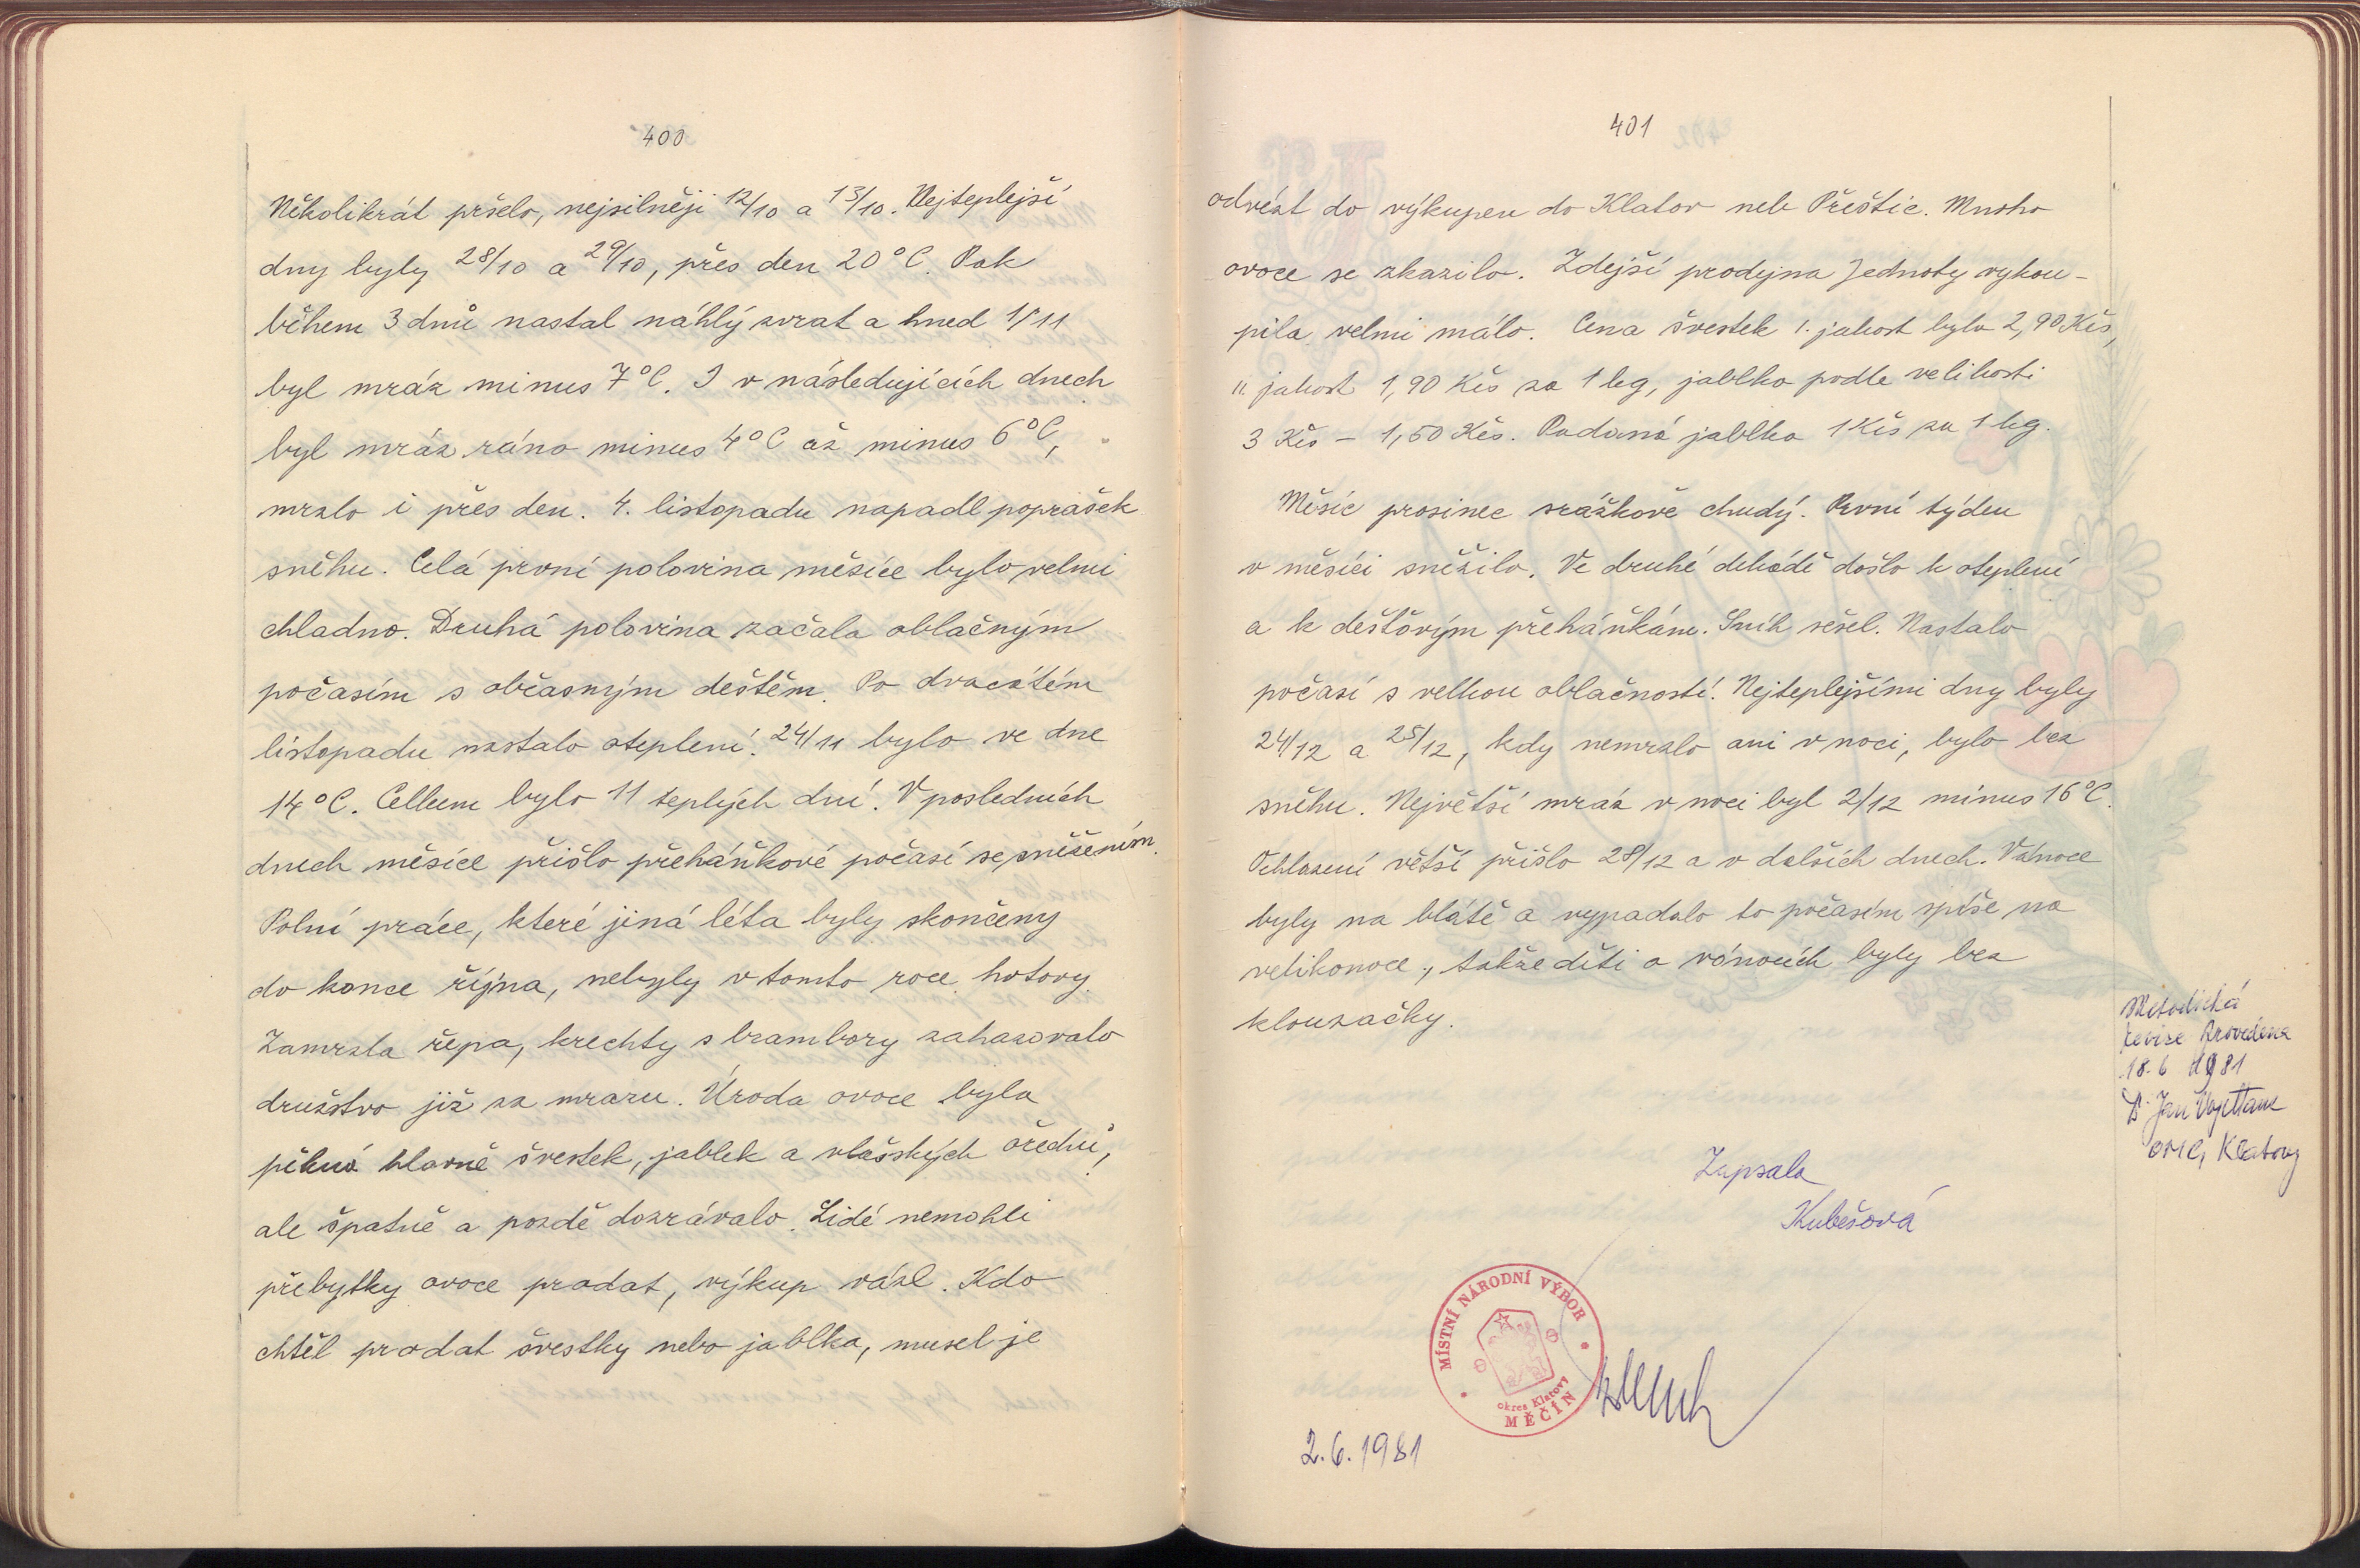 400
Několikrát pršelo, nejsilněji 12/10 a 13/10. Nejteplejší
dny byly 28/10 a 29/10, přes den 20°C. Pak
během 3 dnů nastal náhlý zvrat a hned 1/11
byl mráz minus 7°C. I v následujících dnech
byl mráz ráno minus 4°C až minus 6°C,
mrzlo i přes den. 4. listopadu napadl poprašek
sněhu. Celá první polovina měsíce bylo velmi
chladno. Druhá polovina začala oblačným
počasím s občasným deštěm. Po dvacátém
listopadu nastalo oteplení. 24/11 bylo ve dne
14°C. Celkem bylo 11 teplých dní. V posledních
dnech měsíce přišlo přeháňkové počasí se sněžením.
Polní práce, které jiná léta byly skončeny
do konce října, nebyly v tomto roce hotovy.
Zamrzla řepa, krechty s brambory zahazovalo
družstvo již za mrazu. Úroda ovoce byla
pěkná hlavně švestek, jablek a vlašských ořechů,
ale špatně a pozdě dozrávalo. Lidé nemohli
přebytky ovoce prodat, výkup vázl. Kdo
chtěl prodat švestky nebo jablka, musel je
401
odvézt do výkupen do Klatov neb Přeštic. Mnoho
ovoce se zkazilo. Zdejší prodejna Jednoty vykou-
pila velmi málo. Cena švestek I. jakost byla 2,90 Kčs,
II. jakost 1,90 Kčs za 1 kg, jablka podle velikosti
3 Kčs - 1,50 Kčs. Padaná jablka 1 Kčs za 1 kg.
Měsíc prosinec srážkově chudý. První týden
v měsíci sněžilo. Ve druhé dekádě došlo k oteplení
a k dešťovým přeháňkám. Sníh sešel. Nastalo
počasí s velkou oblačností. Nejteplejšími dny byly
24/12 a 25/12, kdy nemrzlo ani v noci, bylo bez
sněhu. Největší mráz v noci byl 2/12 minus 16°C.
Ochlazení větší přišlo 28/12 a v dalších dnech. Vánoce
byly na blátě a vypadalo to počasím spíše na
velikonoce, takže děti o vánocích byly bez
klouzačky.
Metodická
revize provedena
18. 6 1981
Jan
OMC, Klatovy
Zapsala
Kubešová
MÍSTNÍ NÁRODNÍ VÝBOR
okres Klatovy
MĚČÍN
2. 6. 1981